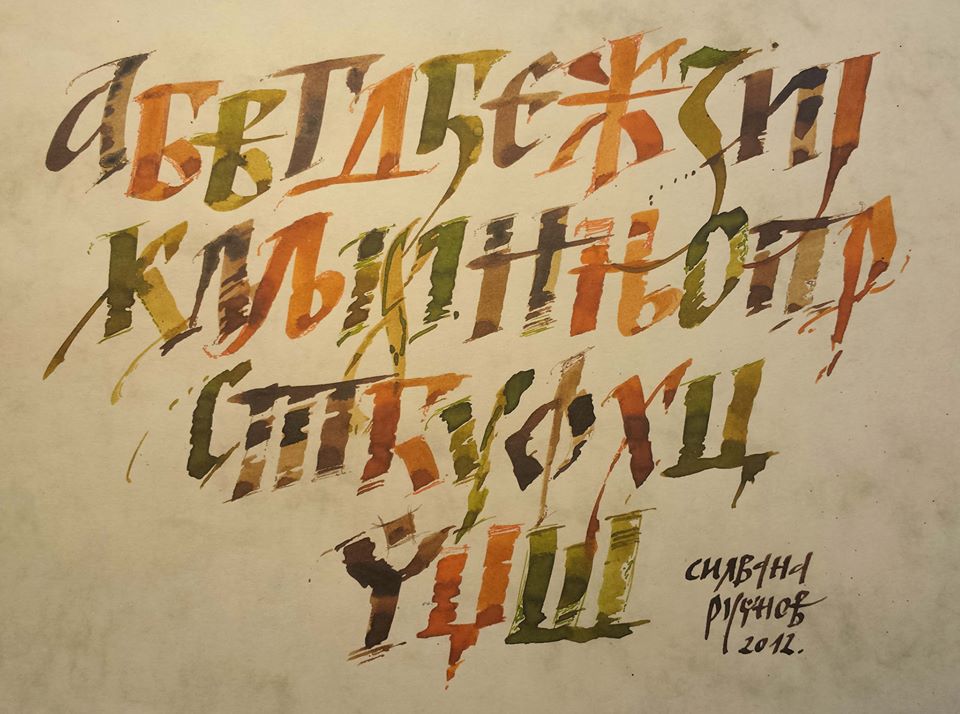 АБВГДЂЕЖЗИЈ
КЛЉМНЊОПР
СТЋУФХЦ
ЧЏШ
СИЛВАНА
2012.